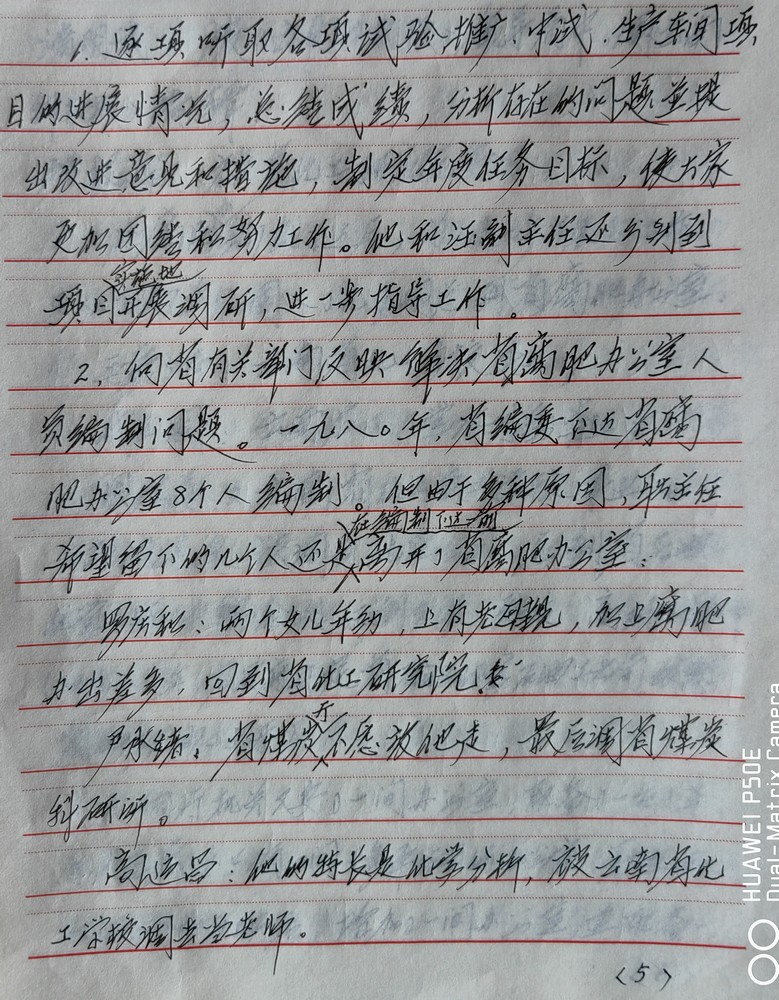 1. 逐项听取各项试验、推广、中试、生产车间项
目的进展情况，总结成绩，分析存在的问题並提
出改进意见和措施，制定年度任务目标，使大家
更加团结和努力工作。他和汪副主任还分别到
实施地
项目开展调研，进一步指导工作。
2、向省有关部门反映解决省腐肥办公室人
员编制问题。一九八〇年，省编委下达省腐
肥办公室8个人编制。但由于多种原因，耿主任
在编制下达前
希望留下的几个人还是离开了省腐肥办公室：
罗庆和：两个女儿年幼，上有老母亲，加上腐肥
办出差多，回到省化工研究院。
尹承绪：省煤炭厅不愿放他走，最后调省煤炭
科研所。
高运昌：他的特长是化学分析，被云南省化
工学校调去当老师。
〈5〉
HUAWEI P50E
Dual-Matrix Camera